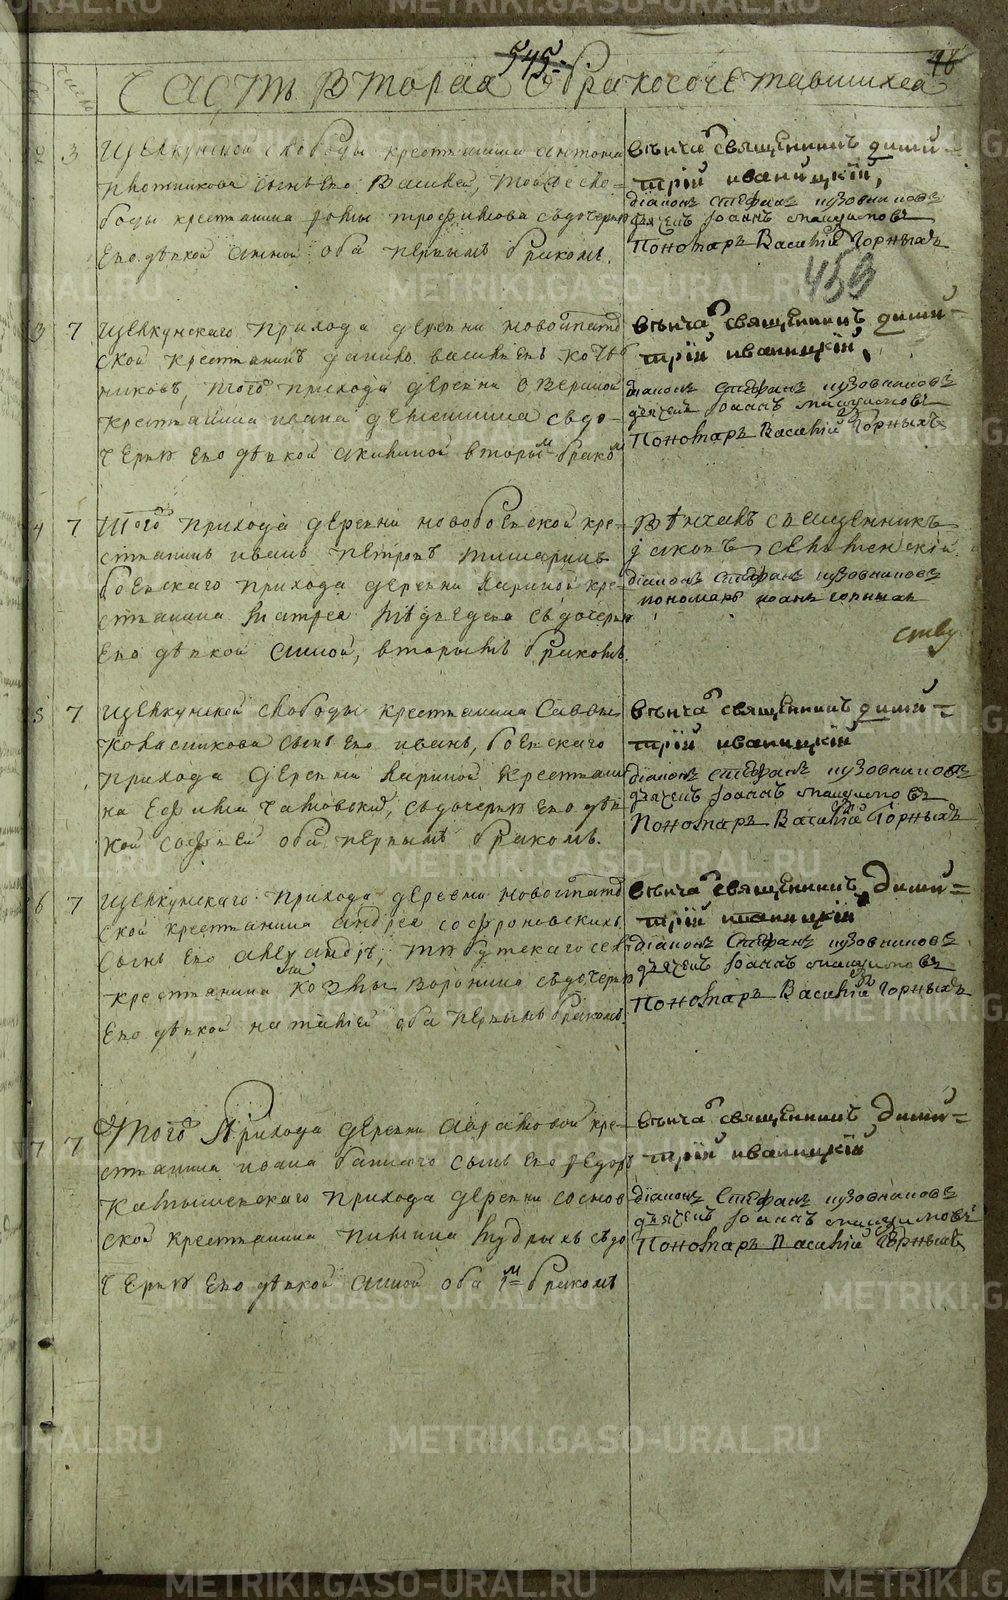 545
16
Часть вторая о бракосочетавшихся
числа
2 3 Щелкунской слободы крестьянина Антона
Плотникова сынъ Его Василей, тойже сло-
боды крестьянина Фомы Трофимова съдочерью
Его дѣвкой Анной оба первымъ бракомъ.
вѣнча священникъ Дими-
трій иваницкій,
діаконъ Стефанъ пузовниковъ
дьячекъ Іоаннъ
Пономарь Василій Горныхъ
453
3 7 Щелкунскаго прихода деревни новоипат
ской крестьянинъ данило васильевъ
никовъ, того прихода деревни
крестьянина ивана деменшина съдо-
черью Его дѣвкой акилиной вторы м брако м
вѣнча священникъ дими-
трій иваницкій,
діаконъ Стефанъ пузовниковъ
дьячекъ Іоаннъ
Пономарь Василій Горныхъ
4 7 Того прихода деревни новобоевской кре-
стьянинъ иванъ петровъ
боевскаго прихода деревни лариной кре-
стьянина съдочерью
Его дѣвкой Анной, вторымъ бракомъ.
Вѣнчалъ священникъ
Іаковъ
діаконъ Стефанъ пузовниковъ
пономарь иоанъ горныхъ
5 7 Щелкунской слободы крестьянина Саввы
Колясникова сынъ Его иванъ, боевскаго
прихода деревни лариной крестьяни
на Ефима съдочерью Его дѣв
кой софьей оба первымъ бракомъ.
вѣнча священникъ дими-
трій иваницкій
діаконъ Стефанъ пузовниковъ
дьячекъ Іоаннъ
Пономарь Василій Горныхъ
6 7 Щелкунскаго прихода деревни новоипат
ской крестьянина андрея софроновскихъ
сынъ Его александръ, тюбутскаго села
крестьянина козмы воронина съдочерью
Его дѣвкой наталіей оба первымъ бракомъ.
вѣнча священникъ Дими-
трій иваницкій
діаконъ Стефанъ пузовниковъ
дьячекъ Іоаннъ
Пономарь Василій Горныхъ
7 7 Того Прихода деревни Абрамовой кре-
стьянина ивана сынъ Его Федоръ
Камышевскаго прихода деревни соснов
ской крестьянина съдо
черью Его дѣвкой Анной оба 1 м бракомъ
вѣнча священникъ Дими-
трій иваницкій
діаконъ Стефанъ пузовниковъ
дьячекъ Іоаннъ
Пономарь Василій Горныхъ
METRIKI.GASO-URAL.RU